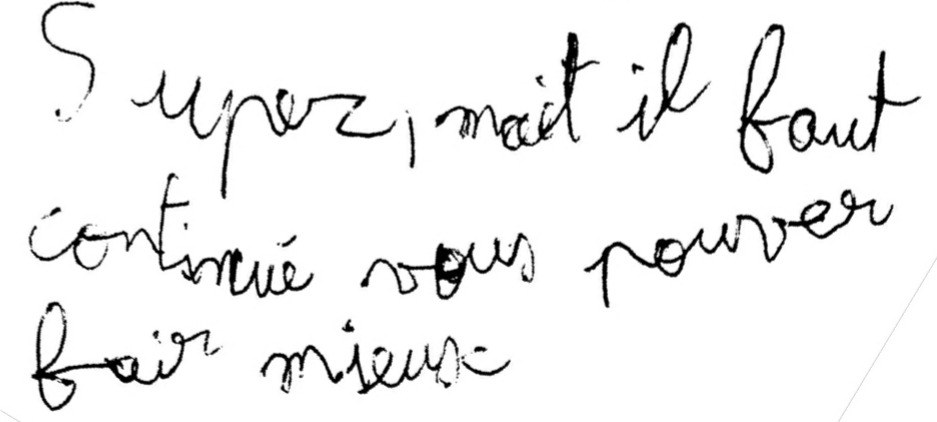 Super, mait il faut
continué vous pouver
fair mieux